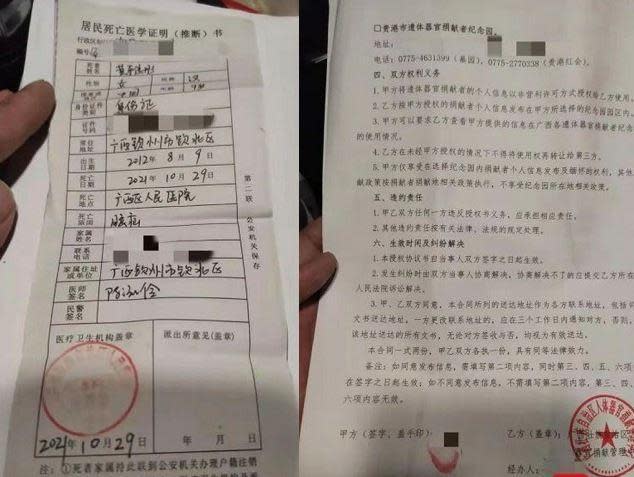 居民死亡医学证明（推断）书
行政区划
编号
死者
姓名
性别 女
身份证件
类别 身份证
证件
号码
常住
地址 广西钦州市钦北区
出生
日期 2012年8月9日
死亡
日期 2021年10月29日
死亡
地点 广西区人民医院
死亡
原因
家属
姓名
联系
电话
家属住址
或单位 广西钦州市钦北区
医师
签名
民警
签名
医疗卫生机构盖章 派出所意见(盖章)
2021年10月29日 年 月 日
注：①死者家属持此联到公安机关办理户籍注销
第二联 公安机关保存
☐贵港市遗体器官捐献者纪念园。
地址：
电话：0775-4631399（墓园），0775-2770338（贵港红会）。
四、双方权利义务
1．甲方将遗体器官捐献者的个人信息以非营利许可方式授权给乙方使用。
2．乙方按甲方授权的捐献者个人信息发布在甲方所选择的纪念园园区内。
3．甲方可以要求乙方查看甲方提供的信息在广西各遗体器官捐献者纪念
的使用情况。
4．乙方在未经甲方授权的情况下不得将使用权再转让给第三方。
5．甲方仅享受在选择纪念园内捐献者个人信息发布及缅怀的权利，其他
献政策按捐献者捐献地相关政策执行，不享受纪念园所在地相关政策。
五、违约责任
1．甲乙双方任何一方违反授权书义务，应承担相应责任。
2．其他违约责任按有关法律、法规的规定处理。
六、生效时间及纠纷解决
1．本授权协议书自甲乙双方签字之日起生效。
2．发生纠纷时由双方当事人协商解决，协商解决不了的日提交乙方所在
人民法院诉讼解决。
3．甲、乙双方同意，本合同所列的送达地址作为各方联系地址，包括
文书送达地址，一方更改联系地址的，应在三个工作日内通知对方，否则，
该地址送达的所有文书，无论对方签收与否，均视为有效送达。
本合同一式两份，甲乙双方各执一份，具有同等法律效力。
备注：如同意发布信息，需填写第二项内容，同时第三、四、五、六项
在签字之日起生效；如不同意发布信息，不需填写第二项内容，第三、四、
六项内容无效。
甲方（签字、盖手印） 乙方（盖章）：
经办人：